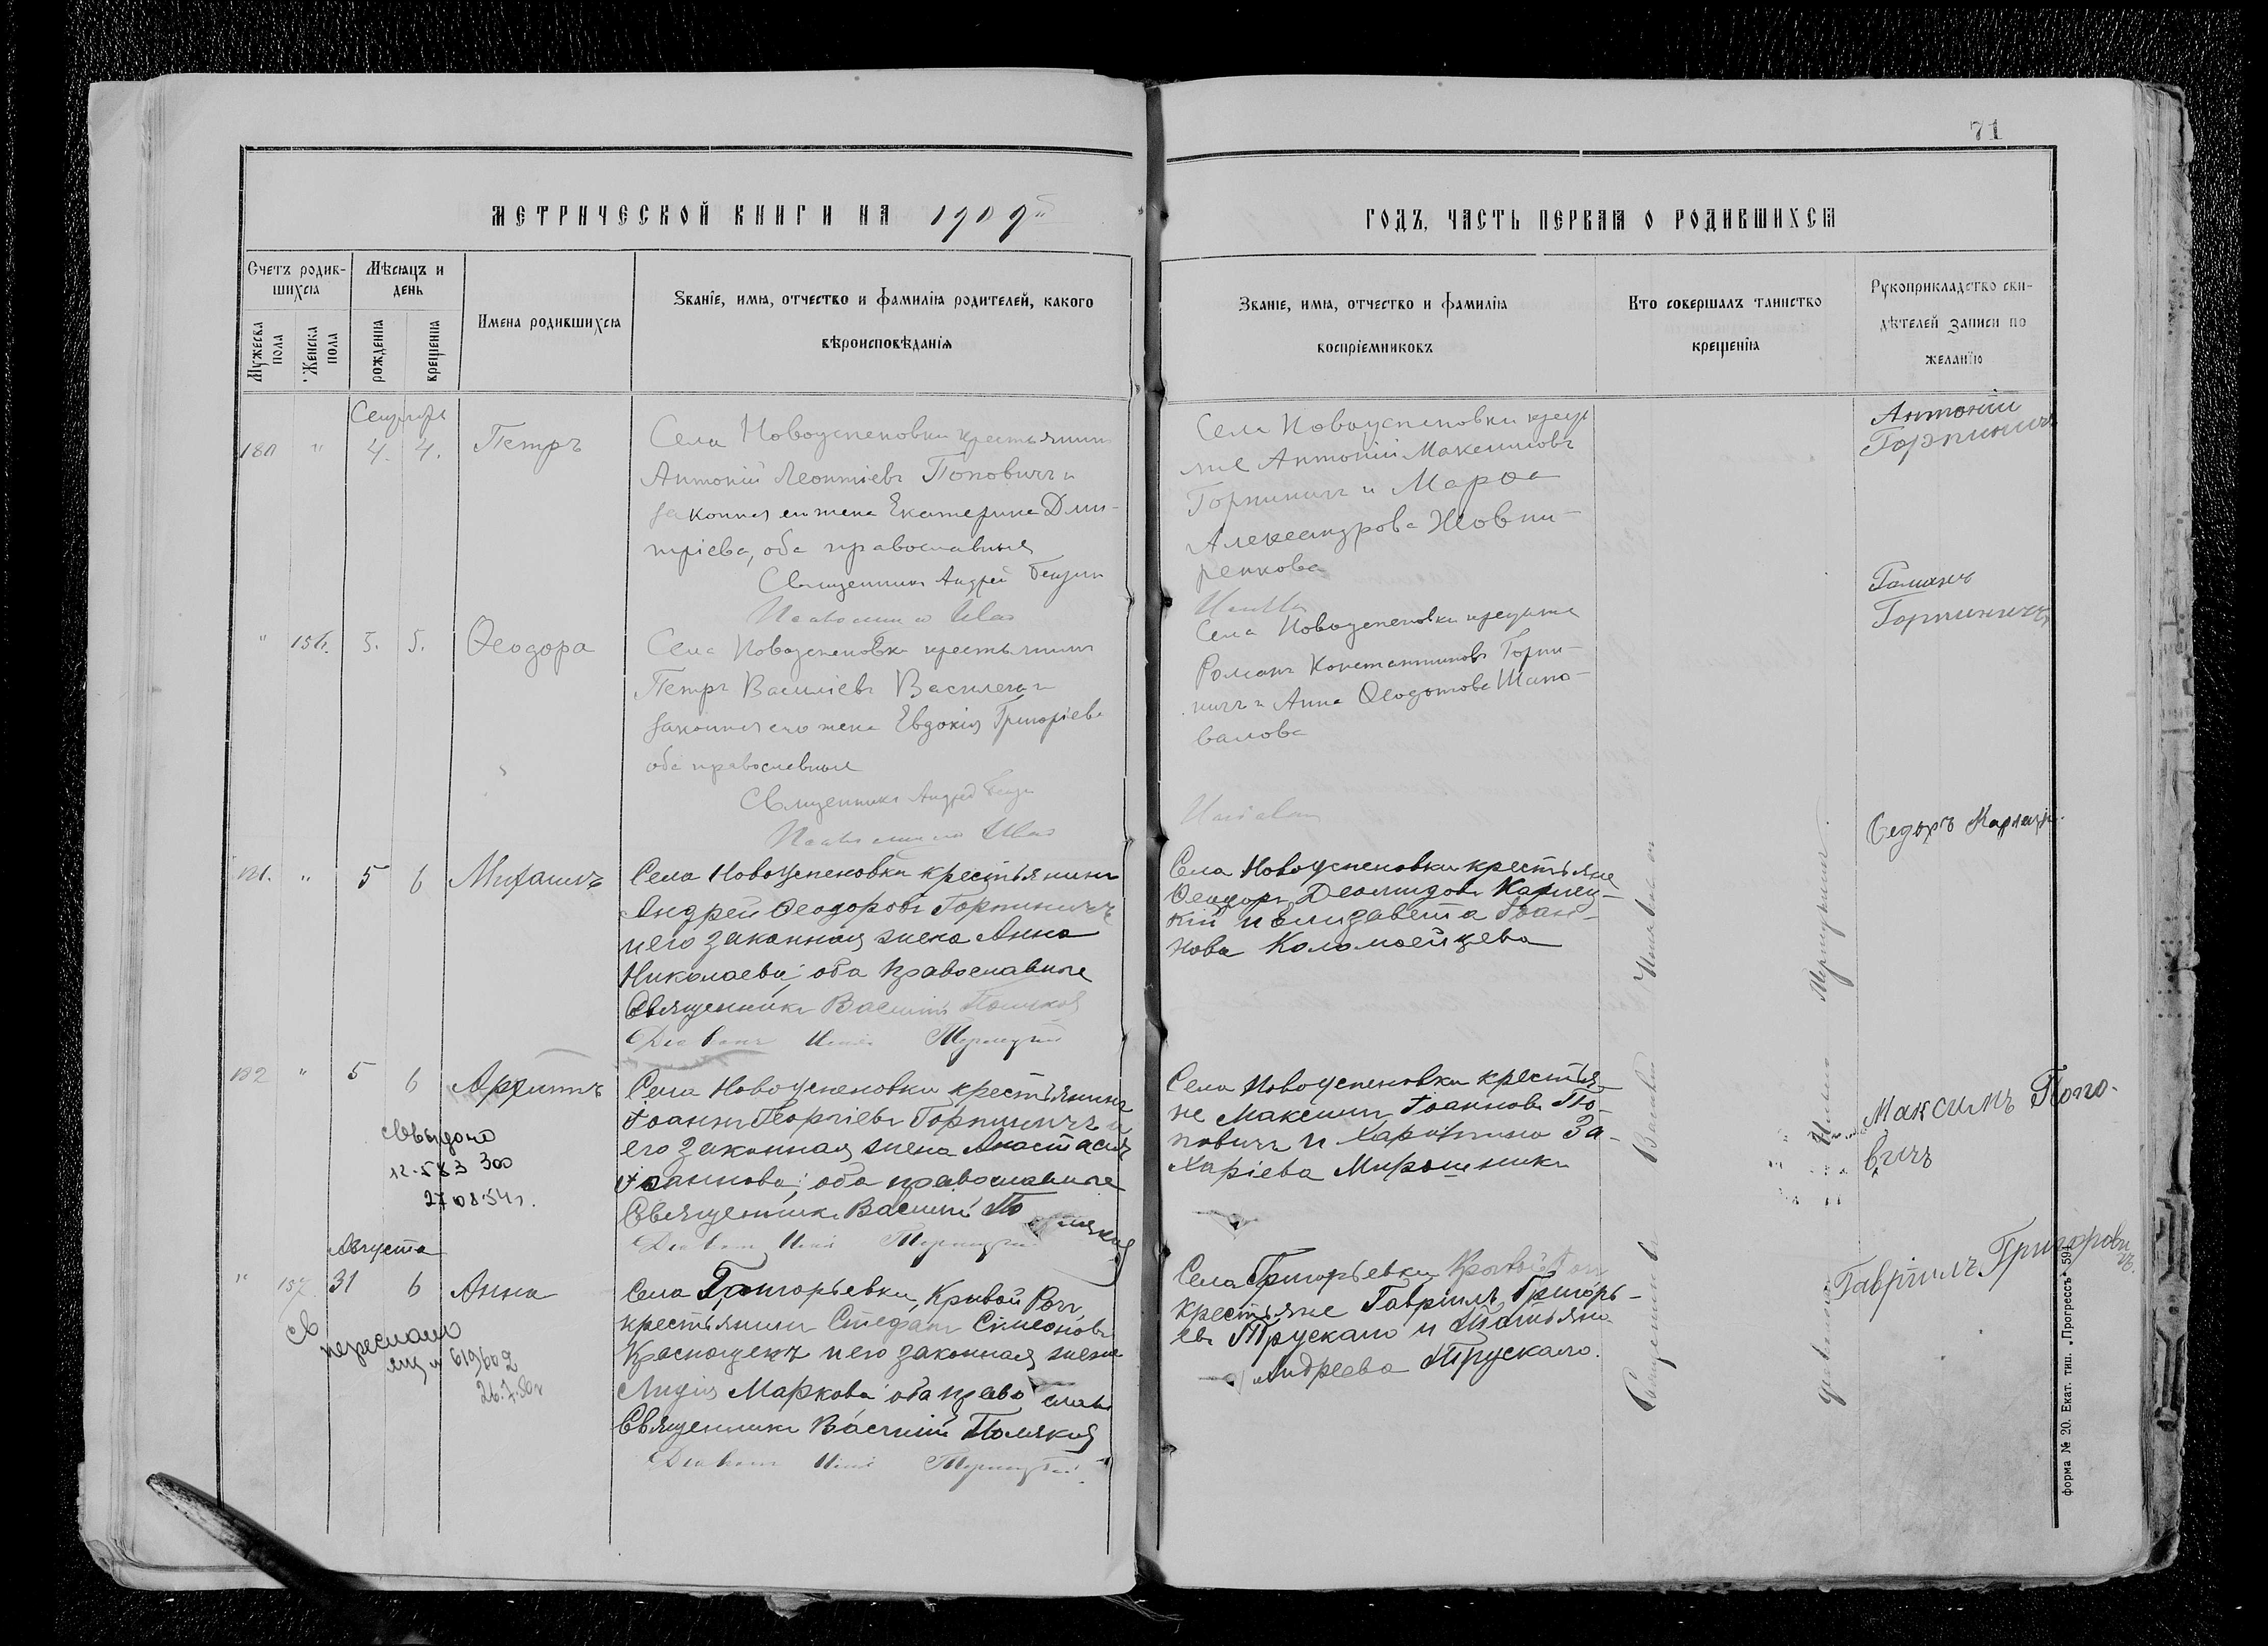 71
МЕТРИЧЕСКОЙ КНИГИ НА 1909й
ГОДЪ, ЧАСТЬ ПЕРВАЯ О РОДИВШИХСЯ
Счетъ родив-
шихся
Мужеска пола
Женска пола
Мѣсяцъ и
день
рожденія
крещенія
Имена родившихся
Званіе, имя, отчество и фамилія родителей, какого
вѣроисповѣданія
Званіе, имя, отчество и фамилія
воспріемниковъ
Кто совершалъ таинство
крещенія
Рукоприкладство сви-
дѣтелей записи по
желанію
180 " 4. 4. Петръ
Села Новоуспеновки крестьянинъ
Антоній Леонтіевъ Поповичъ и
законная его жена Екатерина Дми-
тріева, оба православные
Священникъ Андрей
Села Новоуспеновки кресть
яне Антоній Максимовъ
Горпиничъ и Марѳа
Александрова Жовни-
ренкова
Антоній
Горпиничъ
" 156. 5. 5. Ѳеодора
Села Новоуспеновки крестьянинъ
Петръ Василіевъ и
законная его жена Евдокія Григоріева
оба православные
Священникъ Андрей
Села Новоуспеновки крестьяне
Романъ Константиновъ Горпи-
ничъ и Анна Ѳеодотова Шапо-
валова
Романъ
Горпиничъ
181. " 5 6 Михаилъ
Села Новоуспеновки крестьянинъ
Андрей Ѳеодоровъ Горпиничъ
и его законная жена Анна
Николаева; оба православные
Священникъ Василій Поляковъ
Діаконъ Илія
Села Новоуспеновки крестьяне
Ѳеодоръ Деомидовъ
и Елизавета Іоан-
нова Коломоейцева
Ѳедоръ
182 " 5 6
Села Новоуспеновки крестьянинъ
Іоаннъ Георгіевъ Горпиничъ и
его законная жена Анастасія
Іоаннова; оба православные
Священникъ Василій По
ляковъ
Діаконъ Илія
Села Новоуспеновки крестья-
не Максимъ Іоанновъ По-
повичъ и Харитина За-
харіева Мирошникъ
Максимъ Попо-
вичъ
12-583 300
27 08 54 г.
Августа
" 157. 31 6 Анна
Села Григорьевки, Кривой Рогъ,
крестьянинъ Стефанъ Симеоновъ
Краснощекъ и его законная жена
Лидія Маркова оба право слав
Священникъ Василій Поляковъ
Діаконъ Илія
Села Григорьевки Кривой Рогъ
крестьяне Гавріилъ Григорь-
евъ Трускало и Татьяна
Андреева Трускало.
Гавріилъ Григорови
чъ.
св
переслано
619602
Священникъ Василій
Форма № 20. Екат. тип. „Прогрессъ“ 594